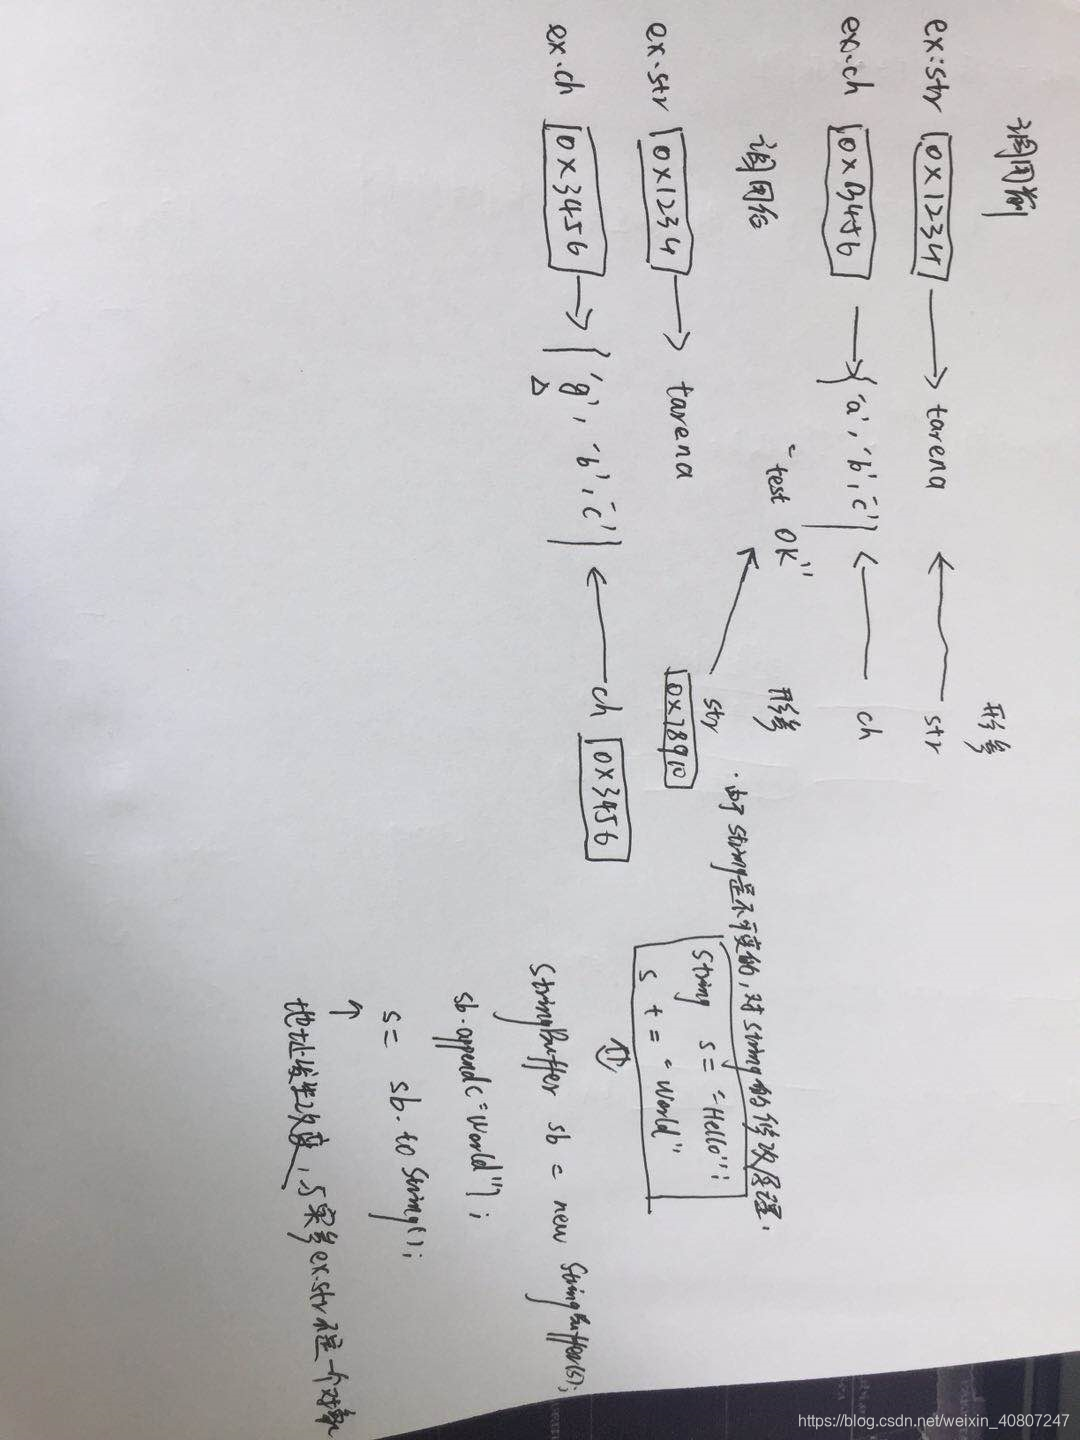 调用前
形参
ex.str 0x1234 → tarena ← str
ex.ch 0x3456 → {'a', 'b', 'c'} ← ch
调用后
"test OK"
形参
str
0x78910
ex.str 0x1234 → tarena
ex.ch 0x3456 → {'g', 'b', 'c'} ← ch 0x3456
·由于string是不可变的,对string的修改原理:
String s = "Hello";
s += "World"
StringBuffer sb = new StringBuffer(s);
sb.append("World");
s = sb.toString();
↑
地址发生改变,与实参ex.str不是一个对象
https://blog.csdn.net/weixin_40807247